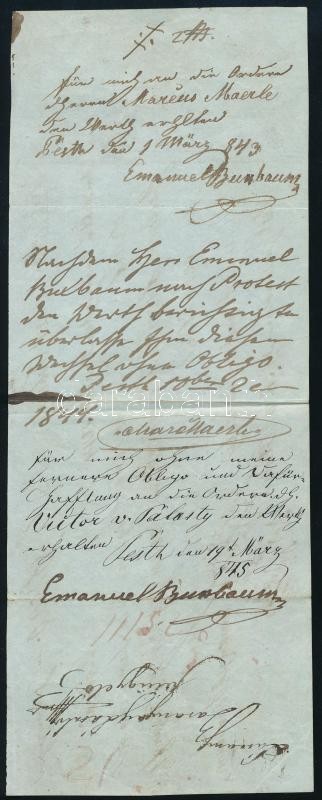 für mich an die Ordere
Herrn Marcus Maerle
den Werth erhlten
Pesth den 1 März 843
Emanuel Bunbaum
Nachdem Herr Emanuel
Bulbaum nach Protest
den Werth berichtigte
überlasse Ihm diesen
Wechsel ohne Obligo.
Pesth
1844.
für mich ohne meine
fernere Obligo und Dafür-
hafftung an die Ordere
Victor v. den Werth
erhalten Pesth den 19t März
845
Emanuel Bunbaum
1115